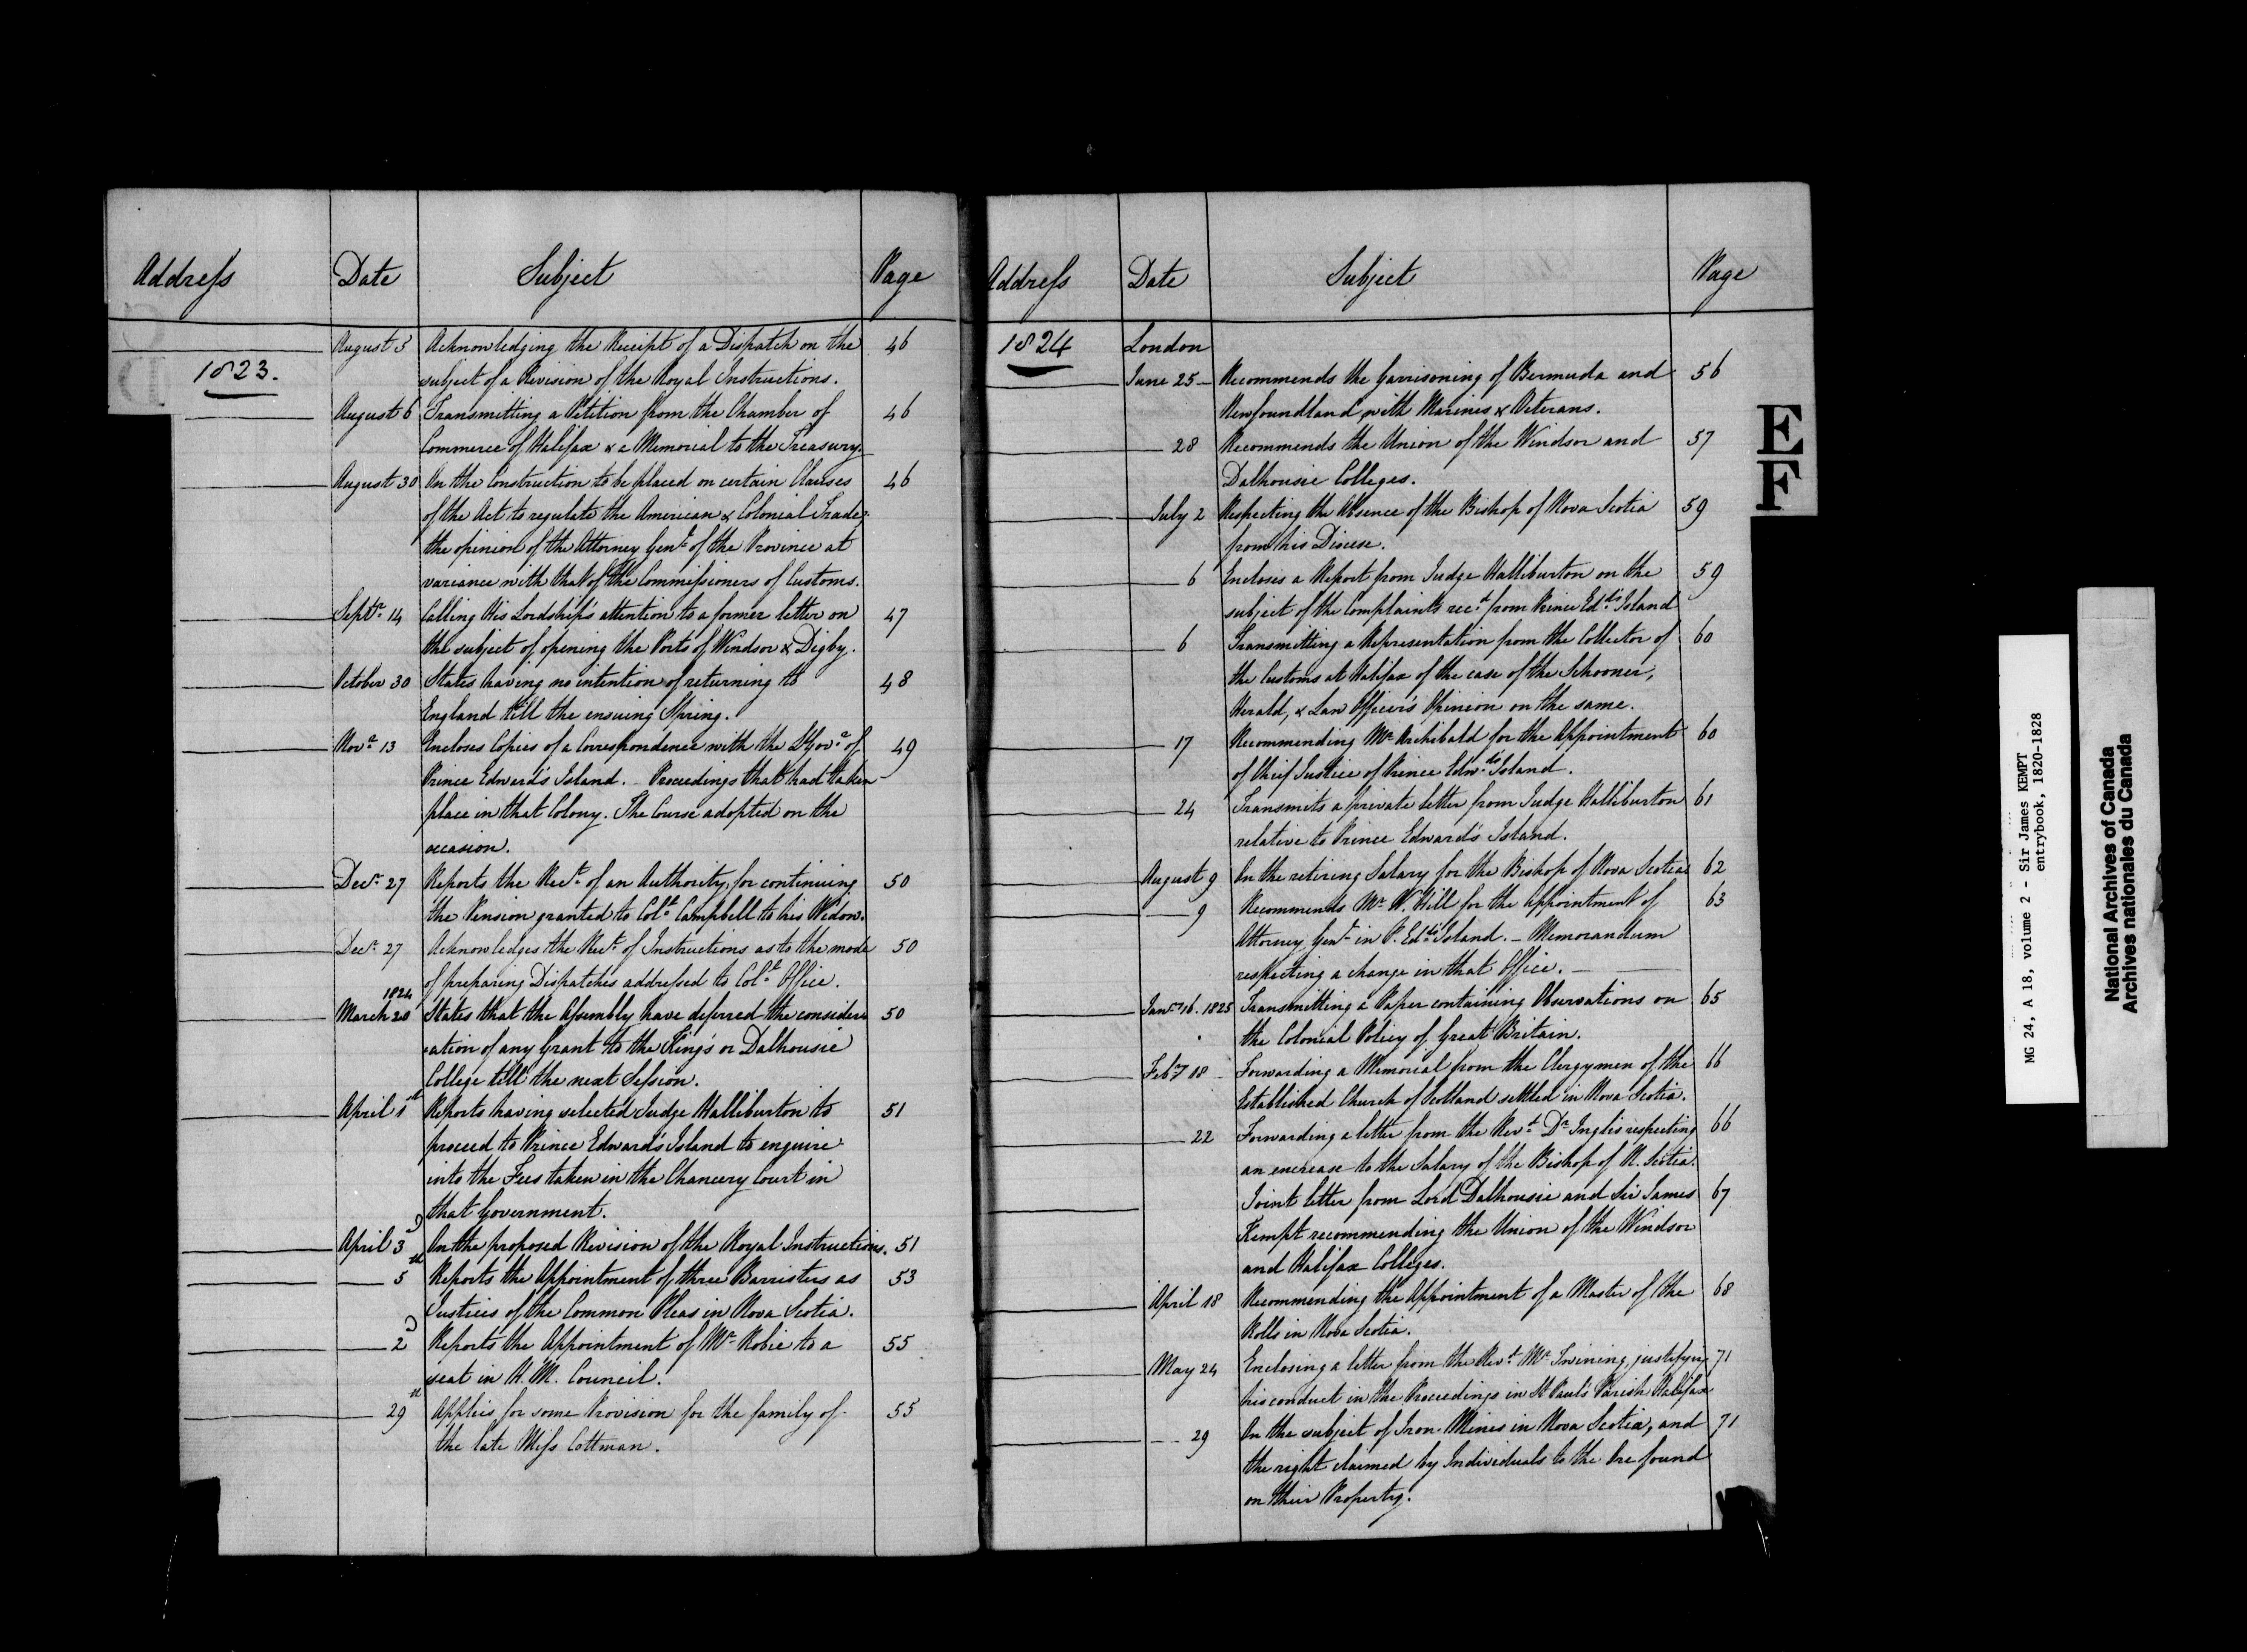 Address Date Subject Page
August 3 Acknowledging the Receipt of a Dispatch on the 46
1823.
subject of a Revision of the Royal Instructions.
August 6 Transmitting a Petition from the Chamber of 46
Commerce of Halifax & a Memorial to the Treasury.
August 30 On the Construction to be placed on certain Clauses 46
of the Act to regulate the American & Colonial Trade;
the opinion of the Attorney Genl. of the Province at
variance with that of the Commissioners of Customs.
Septr. 14 Calling His Lordship's attention to a former letter on 47
the subject of opening the Ports of Windsor & Digby.
October 30 States having no intention of returning to 48
England till the ensuing Spring.
Novr. 13 Encloses Copies of a Correspondence with the Lt Govr. of 49
Prince Edward's Island. – Proceedings that had taken
place in that Colony. The Course adopted on the
occasion.
Decr. 27 Reports the Rect. of an Authority, for continuing 50
the Pension granted to Colo. Campbell to his Widow.
Decr. 27 Acknowledges the Rect. of Instructions as to the mode 50
of preparing Dispatches addressed to Coll. Office.
1824
March 20 States that the Assembly have deferred the consider 50
-ation of any Grant to the King's or Dalhousie
College till the next Session.
April 1st Reports having selected Judge Halliburton to 51
proceed to Prince Edward's Island to enquire
into the Fees taken in the Chancery Court in
that Government.
April 3d On the proposed Revision of the Royal Instructions. 51
5th Reports the Appointment of three Barristers as 53
Justices of the Common Pleas in Nova Scotia.
2d Reports the Appointment of Mr. Robie to a 55
seat in H. M. Council.
29th Applies for some Provision for the family of 55
the late Miss Cottnam.
Address Date Subject Page
1824 London
June 25 – Recommends the Garrisoning of Bermuda and 56
Newfoundland with Marines & Veterans.
28 Recommends the Union of the Windsor and 57
Dalhousie Colleges.
July 2 Respecting the Absence of the Bishop of Nova Scotia 59
from his Diocese.
6 Encloses a Report from Judge Halliburton on the 59
subject of the Complaints recd. from Prince Edds. Island
6 Transmitting a Representation from the Collector of 60
the Customs at Halifax of the case of the Schooner,
Herald, & Law Officer's Opinion on the same.
17 Recommending Mr. Archibald for the Appointment 60
of Chief Justice of Prince Edwds. Island.
24 Transmits a private letter from Judge Halliburton 61
relative to Prince Edward's Island.
August 9 On the retiring Salary for the Bishop of Nova Scotia 62
9 Recommends Mr. W. Hill for the Appointment of 63
Attorney Genl. in P. Edds. Island. – Memorandum
respecting a change in that Office. –
Jany. 16. 1825 Transmitting a Paper containing Observations on 65
the Colonial Policy of Great Britain.
Feby. 18 Forwarding a Memorial from the Clergymen of the 66
Established Church of Scotland settled in Nova Scotia.
22 Forwarding a letter from the Revd. Dr. Inglis respecting 66
an encrease to the Salary of the Bishop of N. Scotia.
Joint letter from Lord Dalhousie and Sir James 67
Kempt recommending the Union of the Windsor
and Halifax Colleges.
April 18 Recommending the Appointment of a Master of the 68
Rolls in Nova Scotia.
May 24 Enclosing a letter from the Revd. Mr. Twining, justifying 71
his conduct in the Proceedings in St Paul's Parish Halifax
29 On the subject of Iron Mines in Nova Scotia, and 71
the right claimed by Individuals to the Ore found
on their Property.
E
F
MG 24, A 18, volume 2 - Sir James KEMPT
entrybook, 1820-1828
National Archives of Canada
Archives nationales du Canada